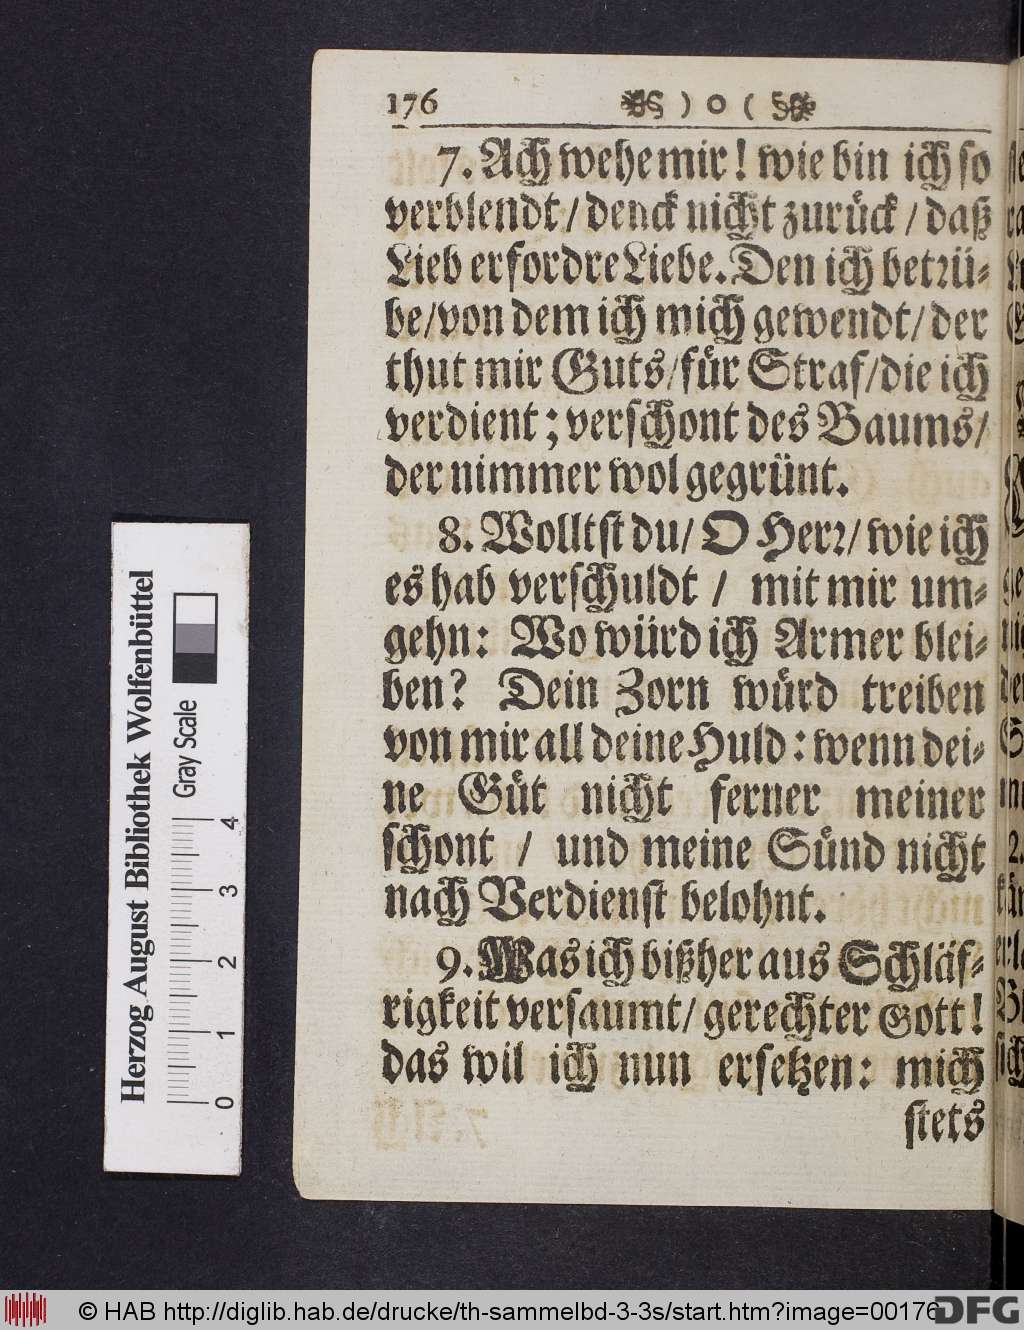 176 ) o (
7. Ach wehe mir! wie bin ich so
verblendt / denck nicht zurück / daß
Lieb erfordre Liebe. Den ich betrü-
be/von dem ich mich gewendt/ der
thut mir Guts/für Straf/die ich
verdient; verschont des Baums/
der nimmer wol gegrünt.
8. Wolltst du/ O Herr/ wie ich
es hab verschuldt / mit mir um-
gehn: Wo würd ich Armer blei-
ben? Dein Zorn würd treiben
von mir all deine Huld: wenn dei-
ne Güt nicht ferner meiner
schont / und meine Sünd nicht
nach Verdienst belohnt.
9. Was ich bißher aus Schläf-
rigkeit versaumt/ gerechter Gott!
das wil ich nun ersetzen: mich
stets
Herzog August Bibliothek Wolfenbüttel
Gray Scale
0 1 2 3 4
© HAB http://diglib.hab.de/drucke/th-sammelbd-3-3s/start.htm?image=00176
DFG